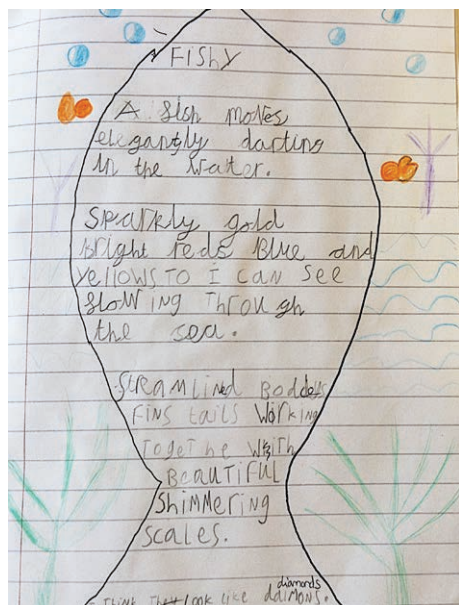 FISHY
A fish moves
elegangtly darting
in the water.
Sparkly gold
Bright reds Blue and
YELLOWS TO I CAN SEE
flowing Through
the sea.
STREAMLINED BODDEYS
FINS tails WORKING
TOGETHE With
BEAUTIFUL
SHIMMERING
SCALES.
diamonds
I THINK THEY LOOK LIKE ddIMONS.